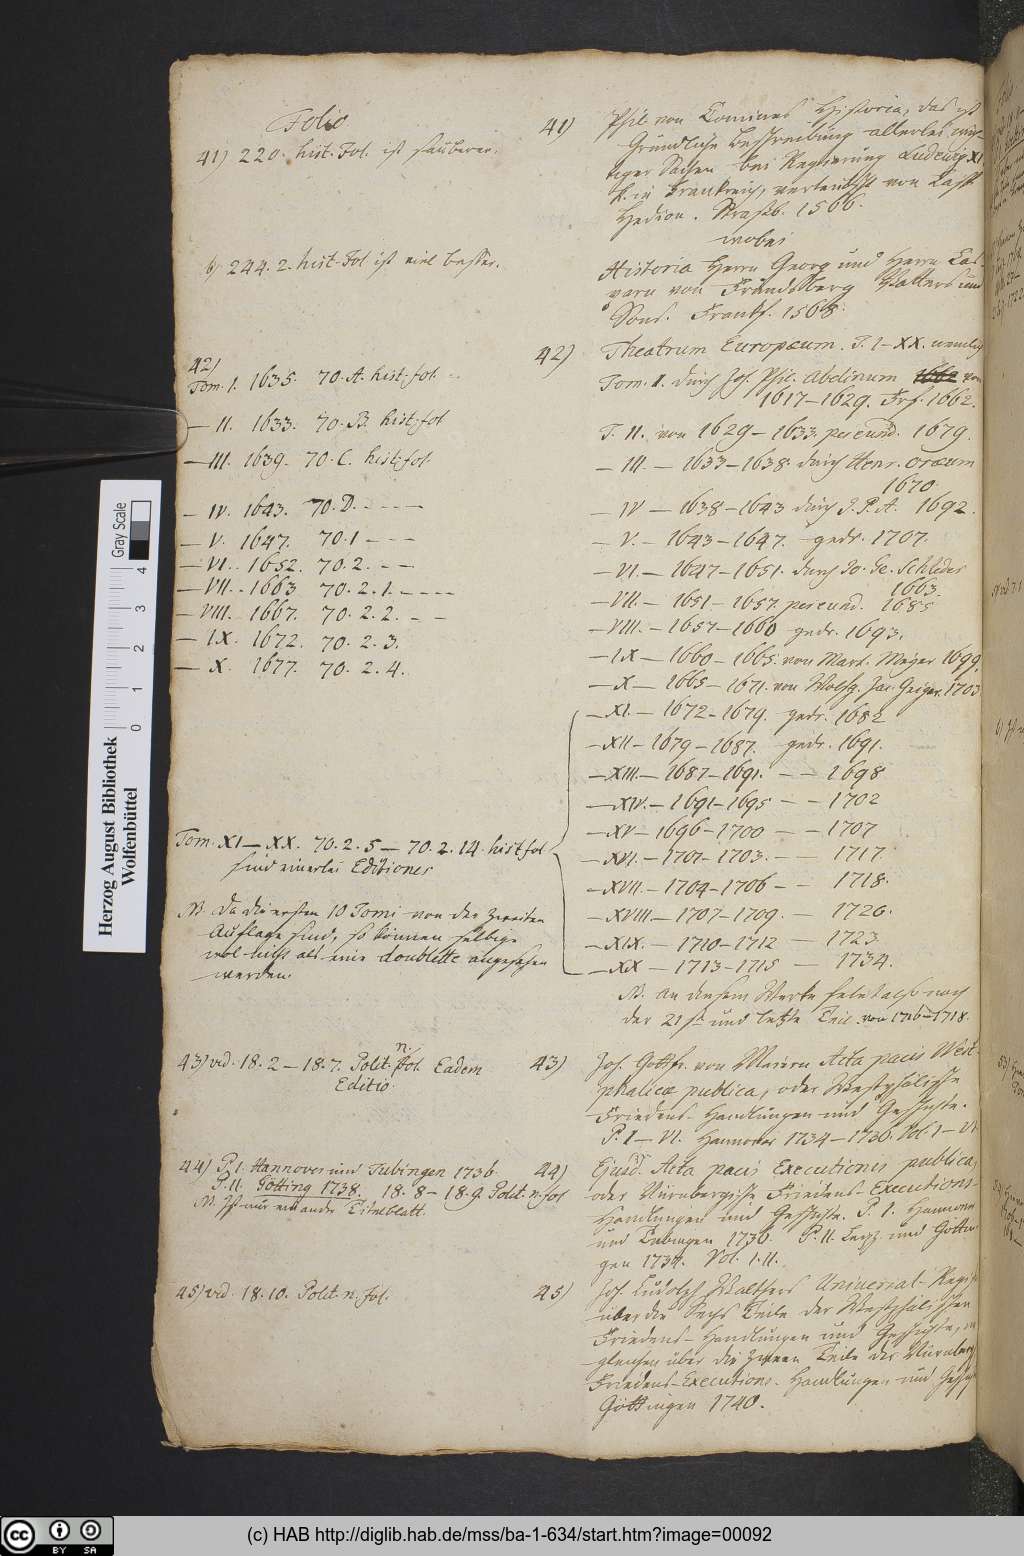 Folio
41) 220. hist. Fol. ist sauberer.
b) 244. 2. hist. Fol. ist viel besser.
42)
Tom. I. 1635. 70. A. hist. fol.
— II. 1633. 70. B. hist. fol
— III. 1639. 70. C. hist. fol.
— IV. 1643. 70. D. - - - -
— V. 1647. 70. 1 - - -
— VI. 1652. 70. 2. - -
— VII. 1663 70. 2. 1. - - - -
— VIII. 1667. 70. 2. 2. - -
— IX. 1672. 70. 2. 3.
— X. 1677. 70. 2. 4.
Tom. XI — XX. 70. 2. 5 — 70. 2. 14. hist fol
sind einerlei Editiones
NB. Da die ersten 10 Tomi von der zweiten
Auflage sind, so können selbige
wol nicht als eine doublette angesehen
werden.
43) vid. 18. 2 — 18. 7. Polit. n. fol. Eadem
Editio.
44) P. I. Hannover und Tubingen 1736.
P. II. Götting 1738. 18. 8 — 18. 9. Polit. n. fol
NB. Ist nur ein ander Titelblatt.
45) vid. 18. 10. Polit. n. fol.
41) Phil. von Comines Historia, das ist
Gründliche Beschreibung allerlei
Sachen bei Regierung Ludewig XI
K. in Frankreich, verteutscht von Casp.
Hedion. Strasb. 1566.
wobei
Historia Herrn Georg und Herrn Cas-
parn von Frundsberg Vatters und
Sons. Frankf. 1568.
42) Theatrum Europæum. T. I — XX. nemlich
Tom. I. durch Joh. Phil. Abelinum von
1617 — 1629. Frf. 1662.
T. II. von 1629 — 1633. per eund. 1679.
— III. — 1633 — 1638. durch Henr. Oræum
1670.
— IV — 1638 — 1643 durch J. P. A. 1692.
— V. — 1643 — 1647. gedr. 1707.
— VI. — 1647 — 1651. durch Jo. Ge. Schleder
1663.
— VII. — 1651 — 1657. per eund. 1685
— VIII. — 1657 — 1660 gedr. 1693.
— IX — 1660 — 1665. von Mart. Meyer 1699.
— X — 1665 — 1671. von Wolfg. Jac. Geiger. 1703
— XI. — 1672 — 1679. gedr. 1682
— XII — 1679 — 1687. gedr. 1691.
— XIII. — 1687 — 1691. — — 1698
— XIV. — 1691 — 1695 — — 1702
— XV — 1696 — 1700 — — 1707
— XVI. — 1701 — 1703. — — 1717.
— XVII. — 1704 — 1706 — — 1718.
— XVIII — 1707 — 1709. — 1720.
— XIX. — 1710 — 1712 — 1723.
— XX — 1713 — 1715 — 1734.
NB. an diesem Werke felet also noch
der 21st und letzte Teil von 1716 — 1718.
43) Joh. Gottfr. von Meiern Acta pacis West-
phalicæ publica, oder Westphälische
Friedens-Handlungen und Geschichte.
P. I — VI. Hannover 1734 — 1736. Vol. I — VI
44) Ejusd. Acta pacis Executionis publica,
oder Nürnbergische Friedens-Executions-
Handlungen und Geschichte. P. I. Hannover
und Tubingen 1736. P. II. Leipz. und Gottin-
gen 1737. Vol. I. II.
45) Joh. Ludolph Walthers Universal-Regist
über die Sechs Teile der Westphälischen
Friedens-Handlungen und Geschichte,
gleichen über die zween Teile der Nürnberg
Friedens-Executions-Handlungen und Gesch
Göttingen 1740.
Herzog August Bibliothek
Wolfenbüttel
Gray Scale
0 1 2 3 4
(c) HAB http://diglib.hab.de/mss/ba-1-634/start.htm?image=00092
cc BY SA